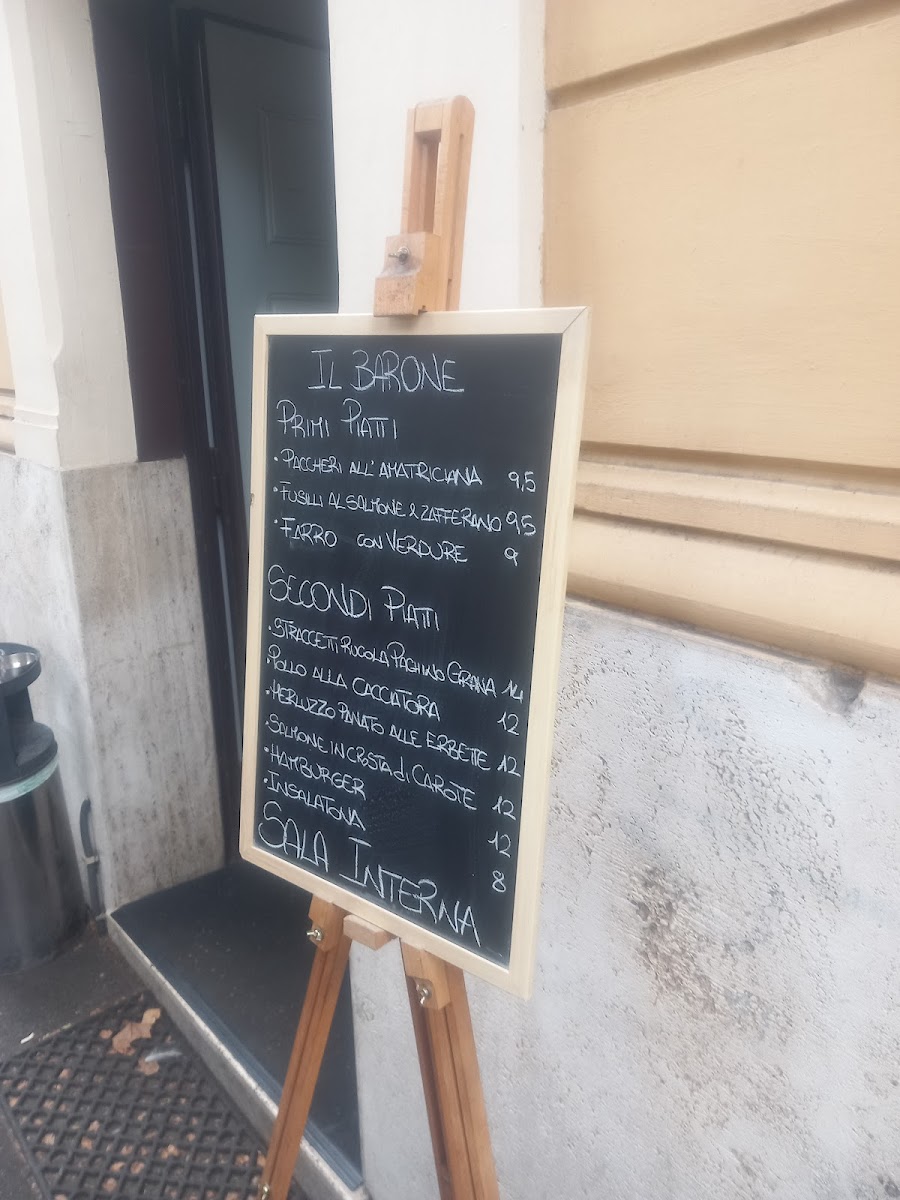 IL BARONE
PRIMI PIATTI
• PACCHERI ALL'AMATRICIANA 9,5
• FUSILLI AL SALMONE & ZAFFERANO 9,5
• FARRO CON VERDURE 9
SECONDI PIATTI
• STRACCETTI RUCOLA PACHINO GRANA 14
• POLLO ALLA CACCIATORA 12
• MERLUZZO PANATO ALLE ERBETTE 12
• SALMONE IN CROSTA di CAROTE 12
• HAMBURGER 12
• INSALATONA 8
SALA INTERNA